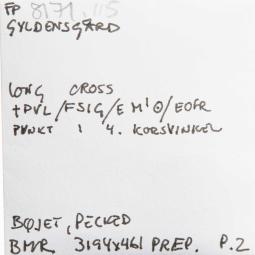 FP 8171.115
GYLDENSGÅRD
LONG CROSS
+PVL/FSIG/E M'O/EOFR
PUNKT I 4. KORSVINKEL
BØJET, PECKED
BMR 3194x461 PREP. P.2